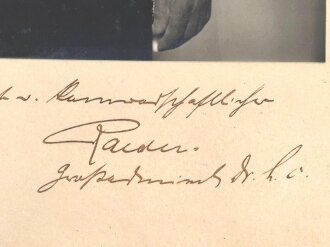 u. Kameradschaftlicher
Raeder.
Großadmiral Dr. h. c.